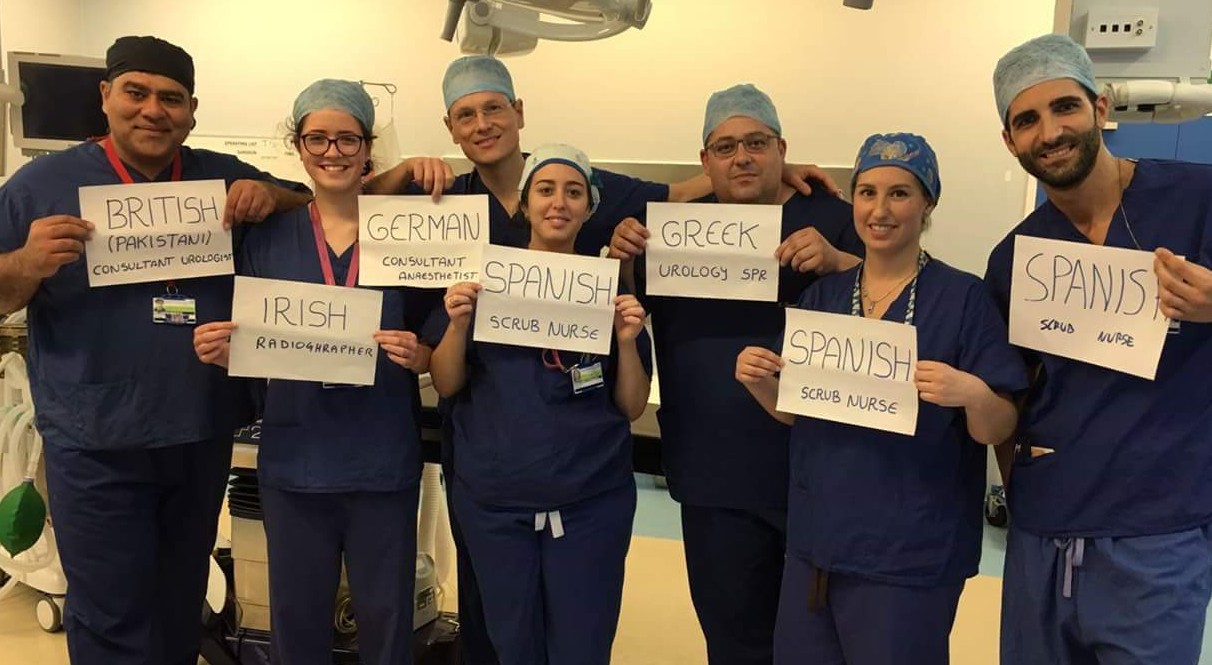 BRITISH
(PAKISTANI)
CONSULTANT UROLOGIST
IRISH
RADIOGHRAPHER
GERMAN
CONSULTANT
ANAESTHETIST
SPANISH
SCRUB NURSE
GREEK
UROLOGY SPR
SPANISH
SCRUB NURSE
SPANIS
SCRUB NURSE
OPERATING LIST
SURGEON